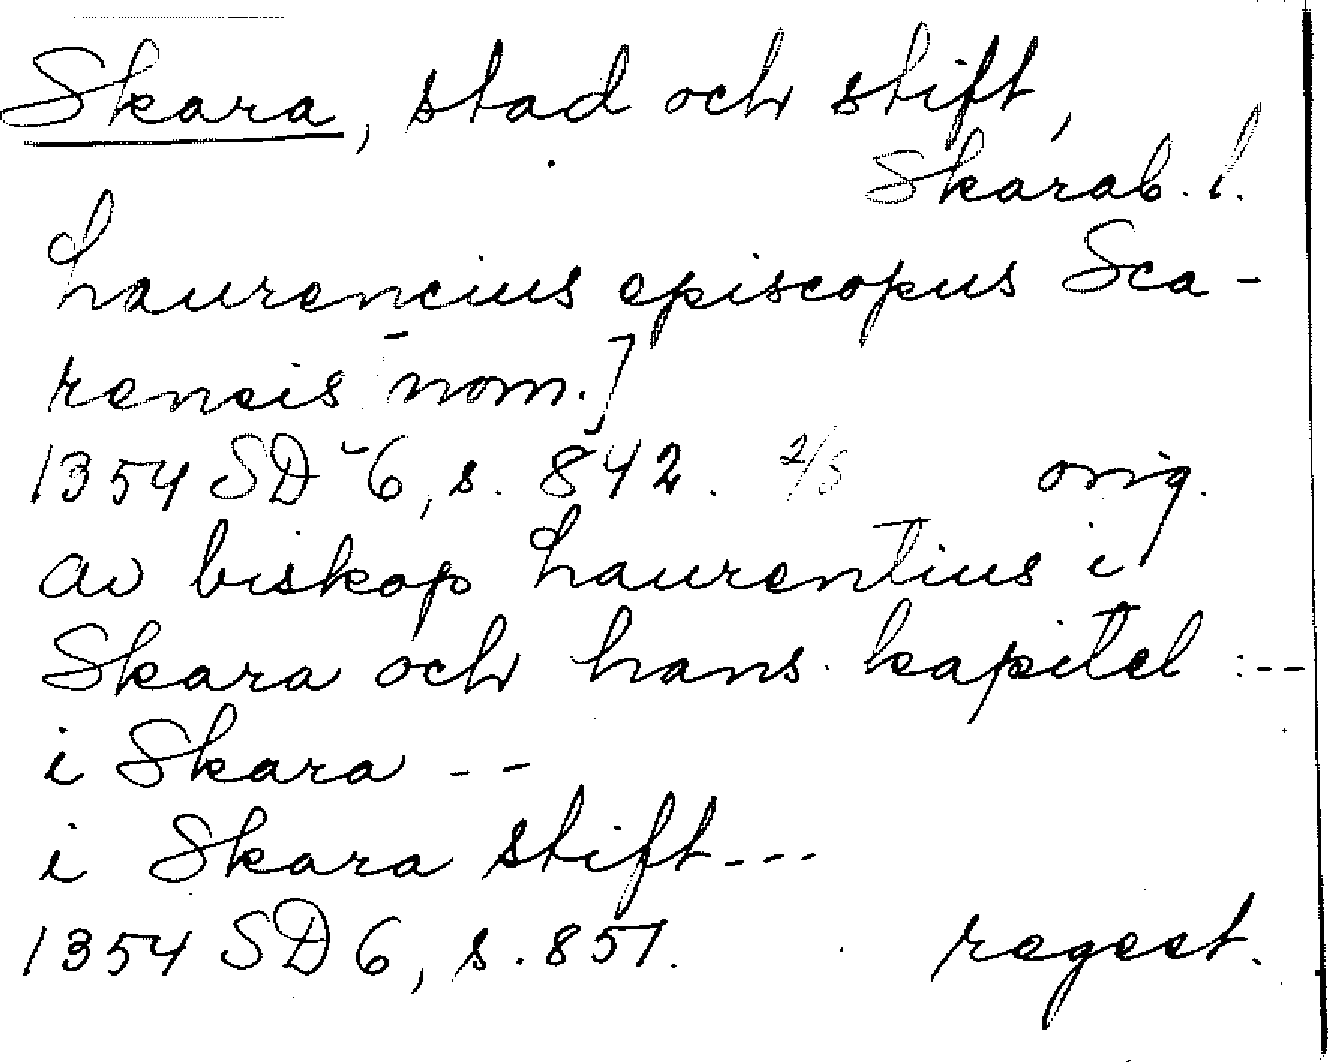 Skara, stad och stift,
Skarab. l.
Laurencius episcopus Sca-
rencis [nom.]
1354 SD 6, s. 842. 2/5 orig.
av biskop Laurentius i
Skara och hans kapitel :--
i Skara --
i Skara stift---
1354 SD 6, s. 851. regest.